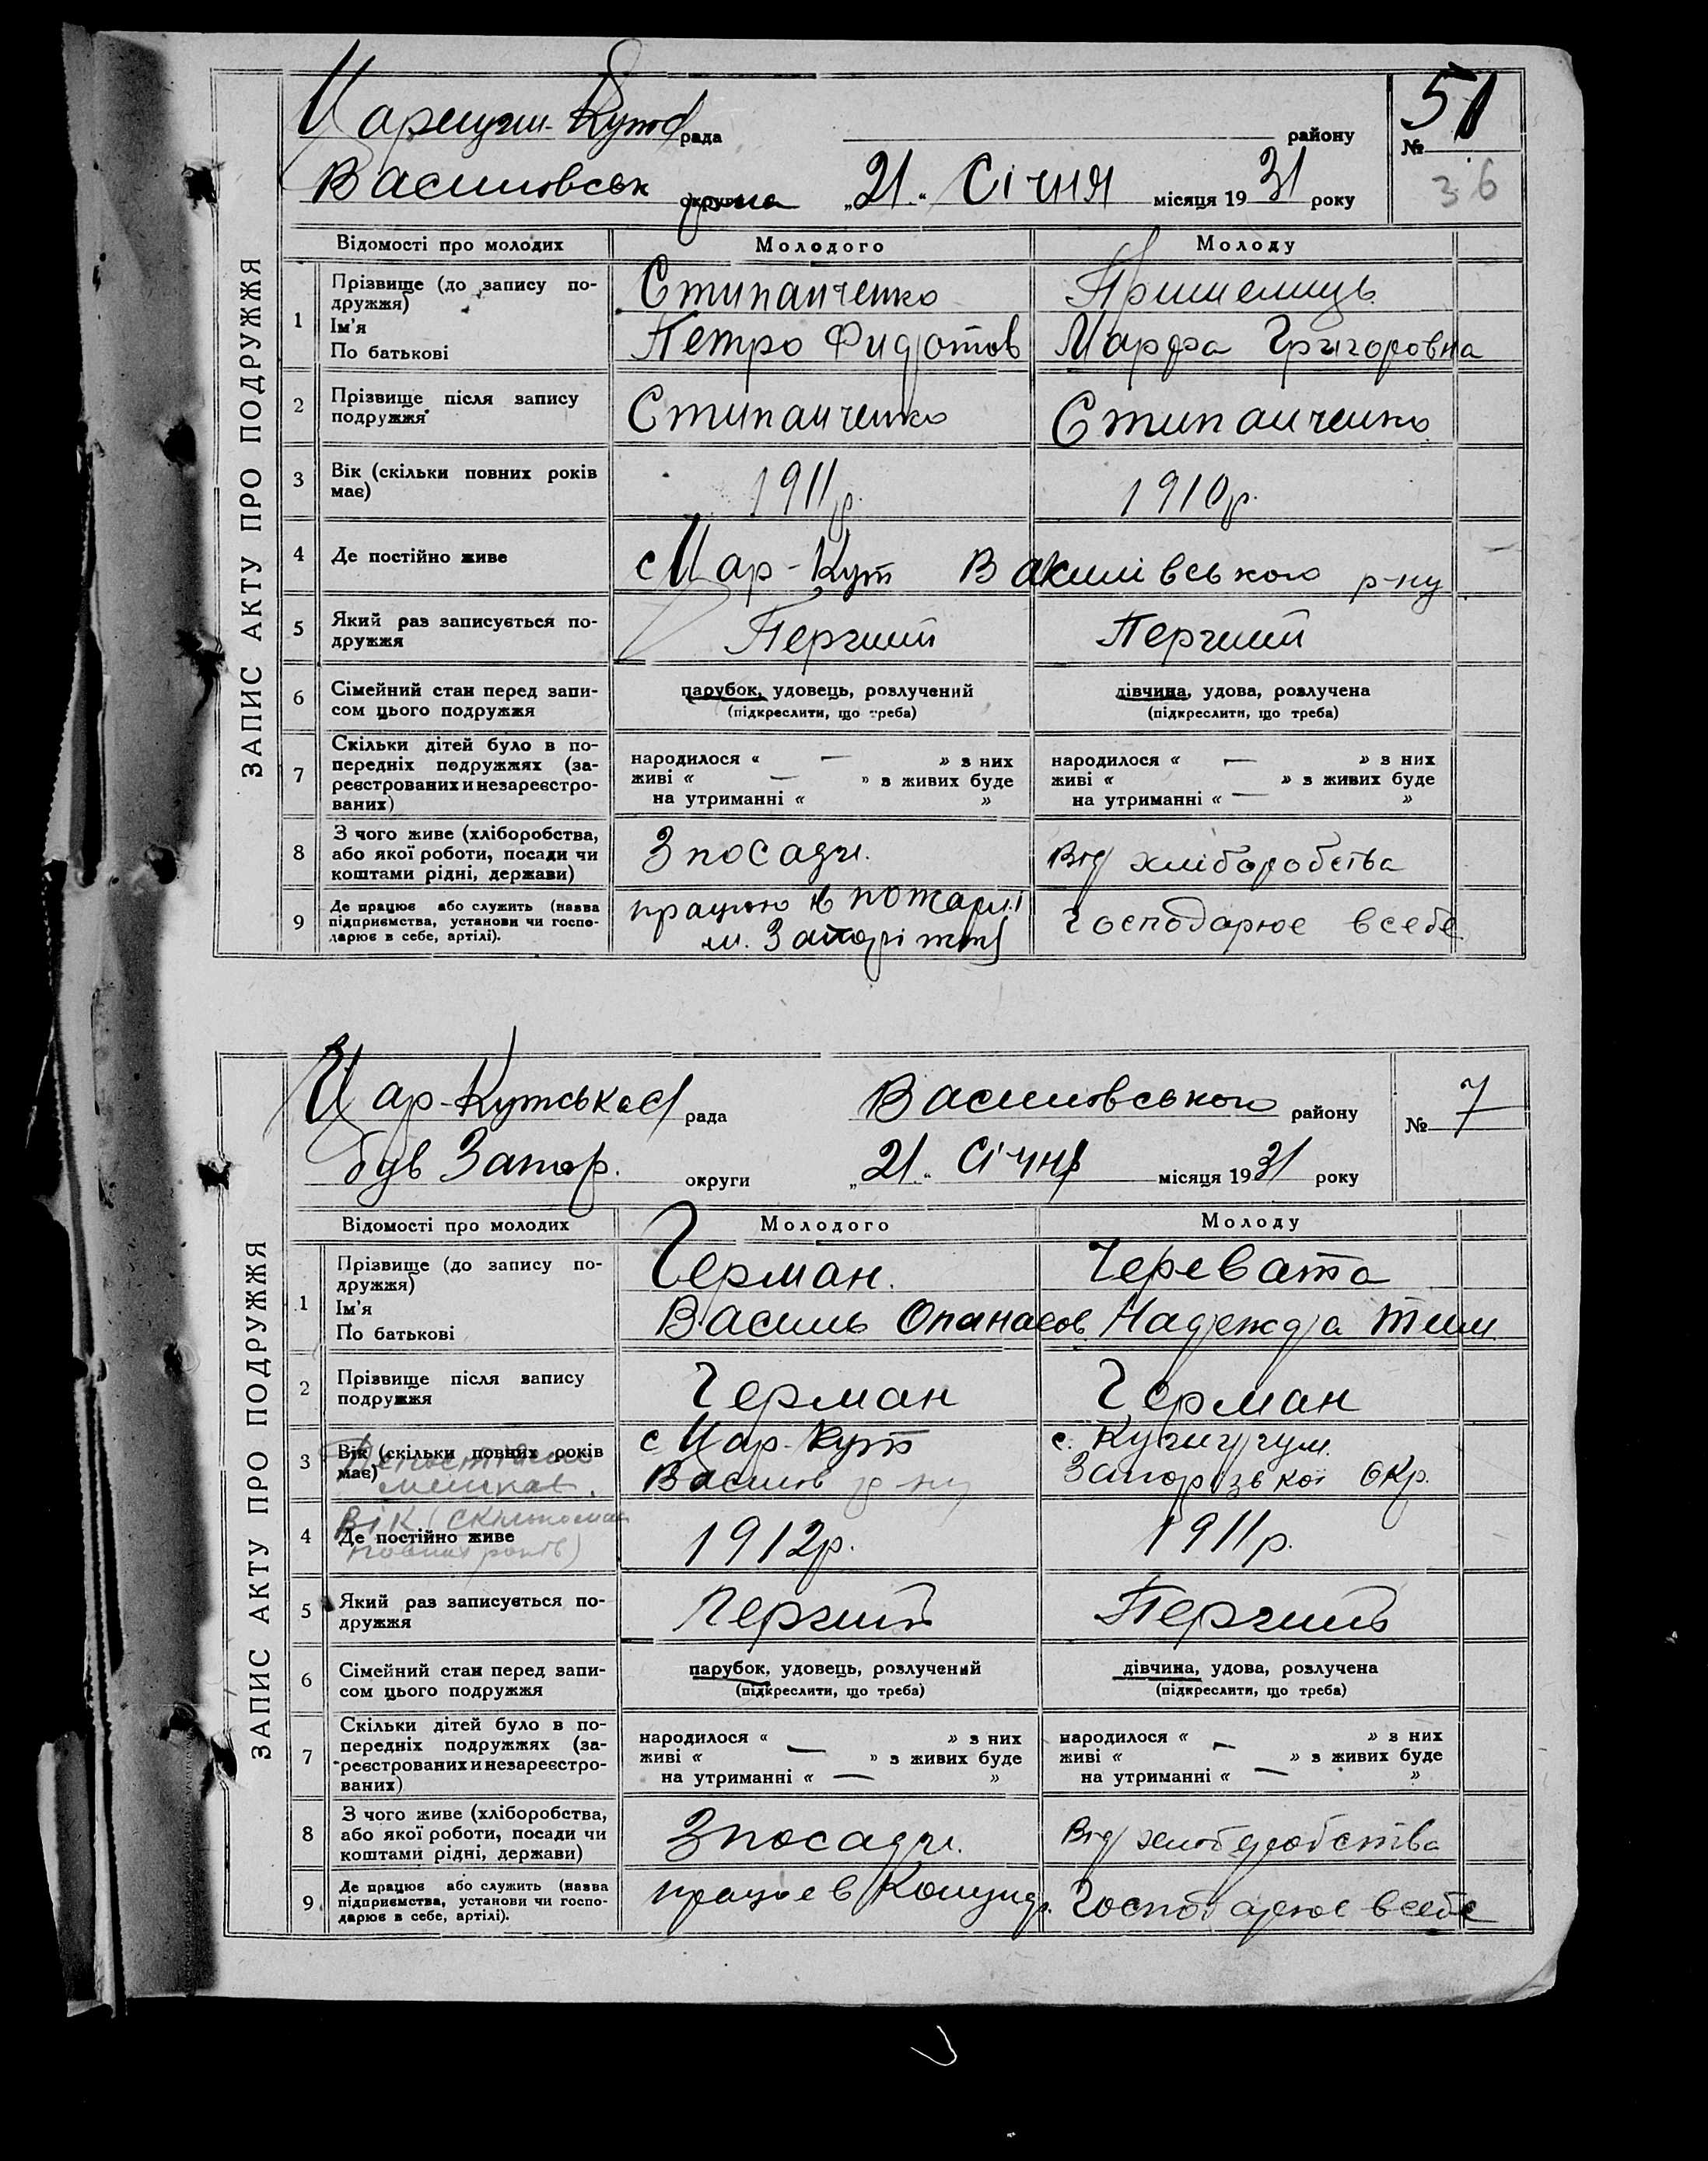 ЗАПИС АКТУ ПРО ПОДРУЖЖЯ
рада району № 51
Василовськ округи „21“ Січня місяця 1931 року 36
Відомості про молодих Молодого Молоду
1 Прізвище (до запису подружжя) Стипанченко
Ім'я
По батькові Петро Фидотов Марфа Григоровна
2 Прізвище після запису подружжя Стипанченко Стипанченко
3 Вік (скільки повних років має) 1911р. 1910р.
4 Де постійно живе с Цар-Кут Васи​лівського р-ну
5 Який раз записується подружжя Перчий Перчий
6 Сімейний стан перед записом цього подружжя парубок, удовець, розлучений дівчина, удова, розлучена
(підкреслити, що треба) (підкреслити, що треба)
7 Скільки дітей було в попередніх подружжях (зареєстрованих и незареєстрованих) народилося « — » з них народилося « — » з них
живі « — » з живих буде живі « » з живих буде
на утриманні « » на утриманні « — »
8 З чого живе (хліборобства, або якої роботи, посади чи коштами рідні, держави) З посади. Від хліборобства
9 Де працює або служить (назва підприємства, установи чи господарює в себе, артілі). працює в пожарні Господарює в себе
м. Запоріжжі
ЗАПИС АКТУ ПРО ПОДРУЖЖЯ
Цар-Кутська с/рада Василовського району № 7
був Запор. округи „21“ Січня місяця 1931 року
Відомості про молодих Молодого Молоду
1 Прізвище (до запису подружжя) Герман. Черевата
Ім'я
По батькові Василь Опанасов Надежда Тим.
2 Прізвище після запису подружжя Герман Герман
3 Вік (скільки повних років має) с Цар-Кут с. Кучугум.
Де постійно мешкає. Васи​лів р-ну Запорізької окр.
4 Де постійно живе 1912р. 1911р.
Вік (скільки має повних років)
5 Який раз записується подружжя Перчий Перчий
6 Сімейний стан перед записом цього подружжя парубок, удовець, розлучений дівчина, удова, розлучена
(підкреслити, що треба) (підкреслити, що треба)
7 Скільки дітей було в попередніх подружжях (зареєстрованих и незареєстрованих) народилося « » з них народилося « » з них
живі « — » з живих буде живі « — » з живих буде
на утриманні « — » на утриманні « — »
8 З чого живе (хліборобства, або якої роботи, посади чи коштами рідні, держави) З посади. Від хліборобства
9 Де працює або служить (назва підприємства, установи чи господарює в себе, артілі). працює в Господарює в себе